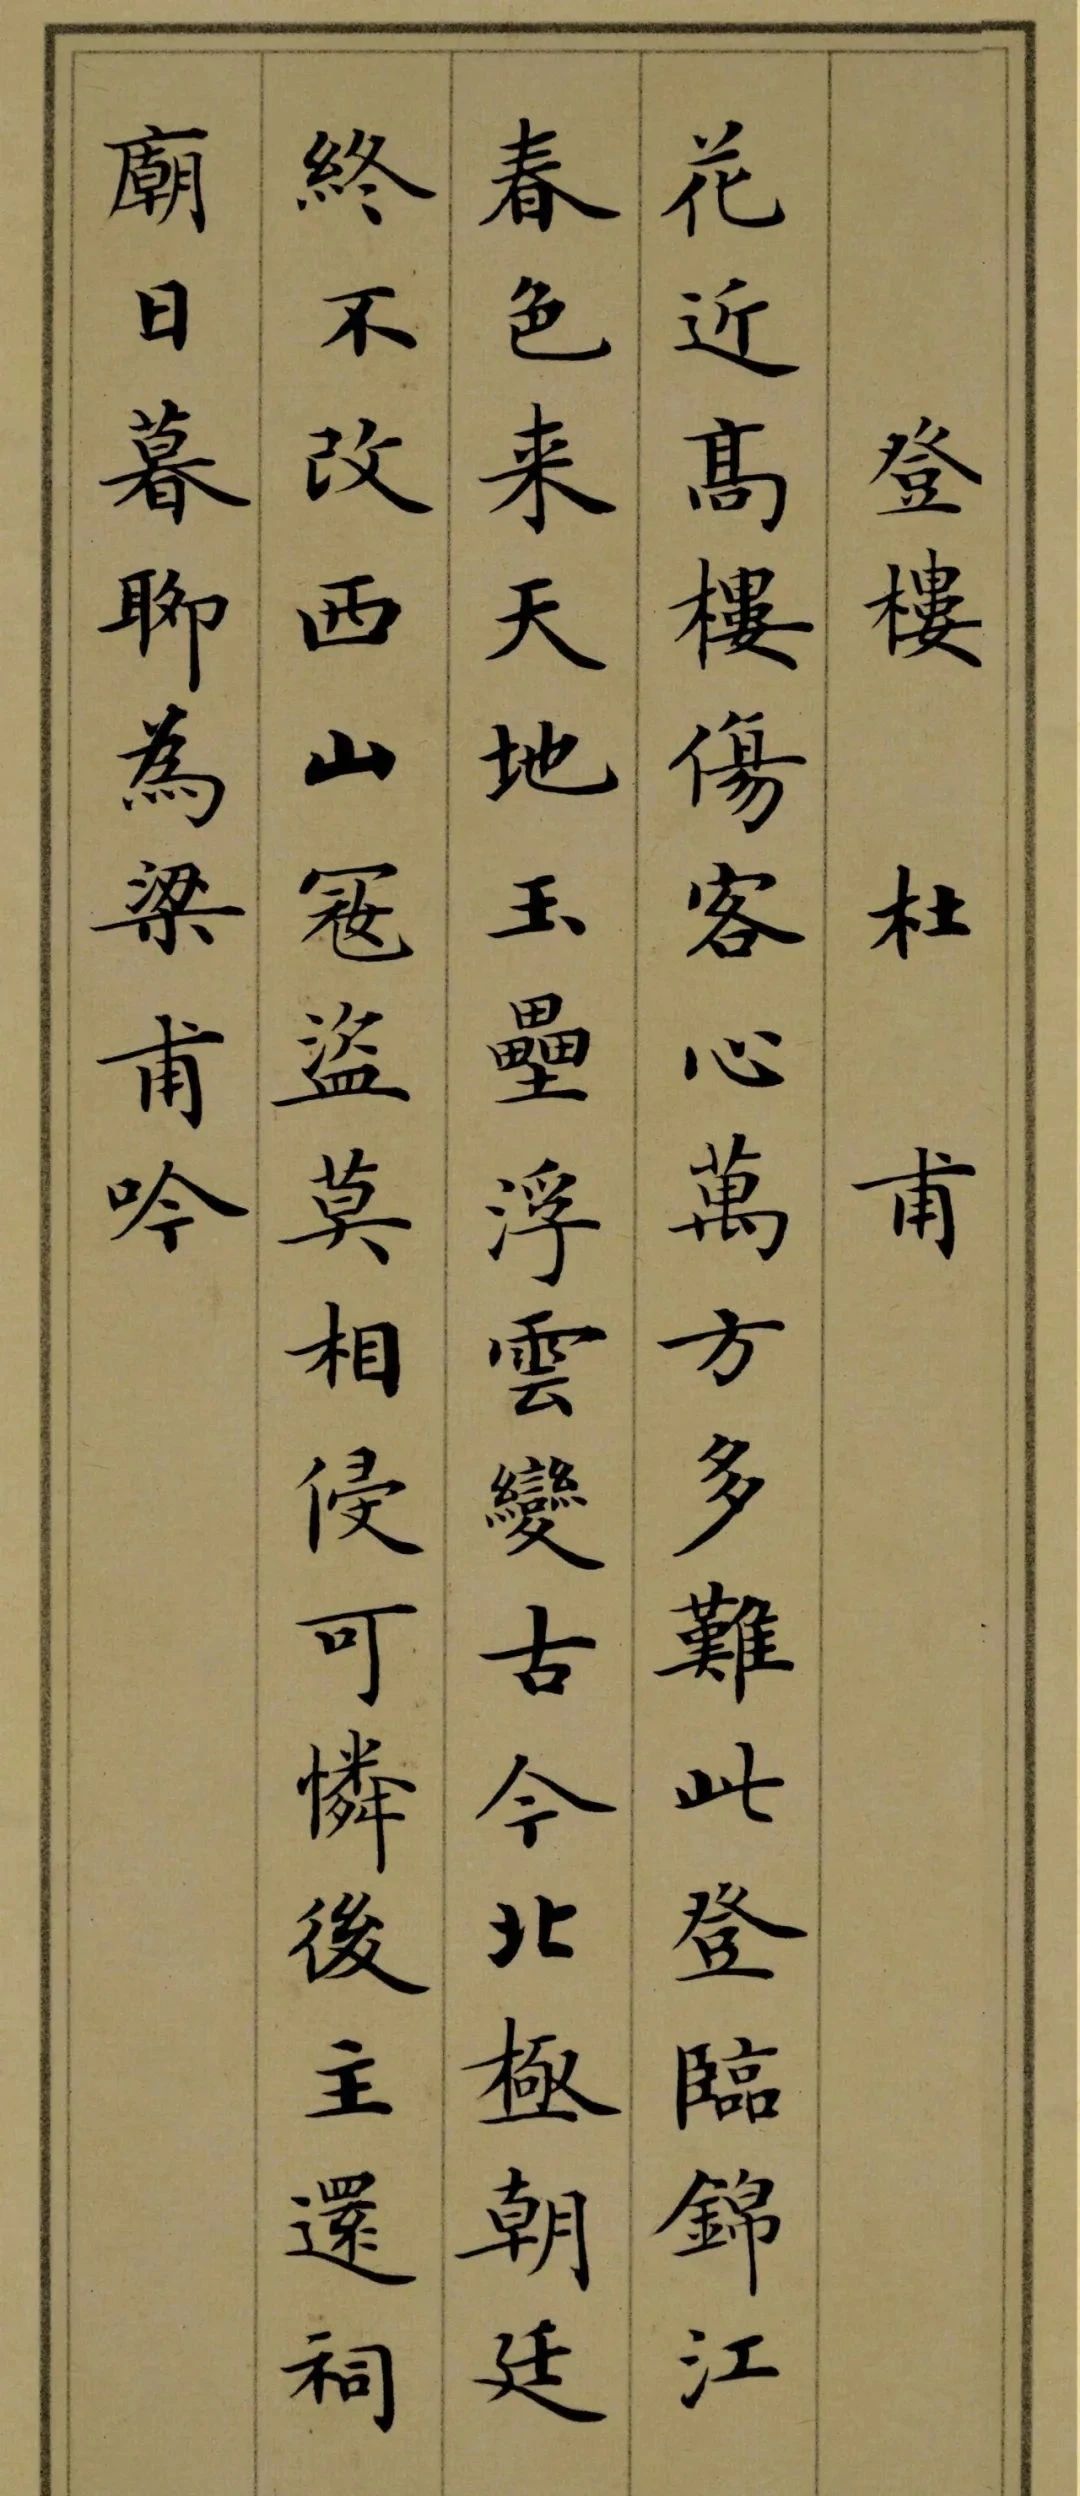 登樓 杜甫
花近高樓傷客心萬方多難此登臨錦江
春色来天地玉壘浮雲變古今北極朝廷
終不改西山寇盜莫相侵可憐後主還祠
廟日暮聊為梁甫吟